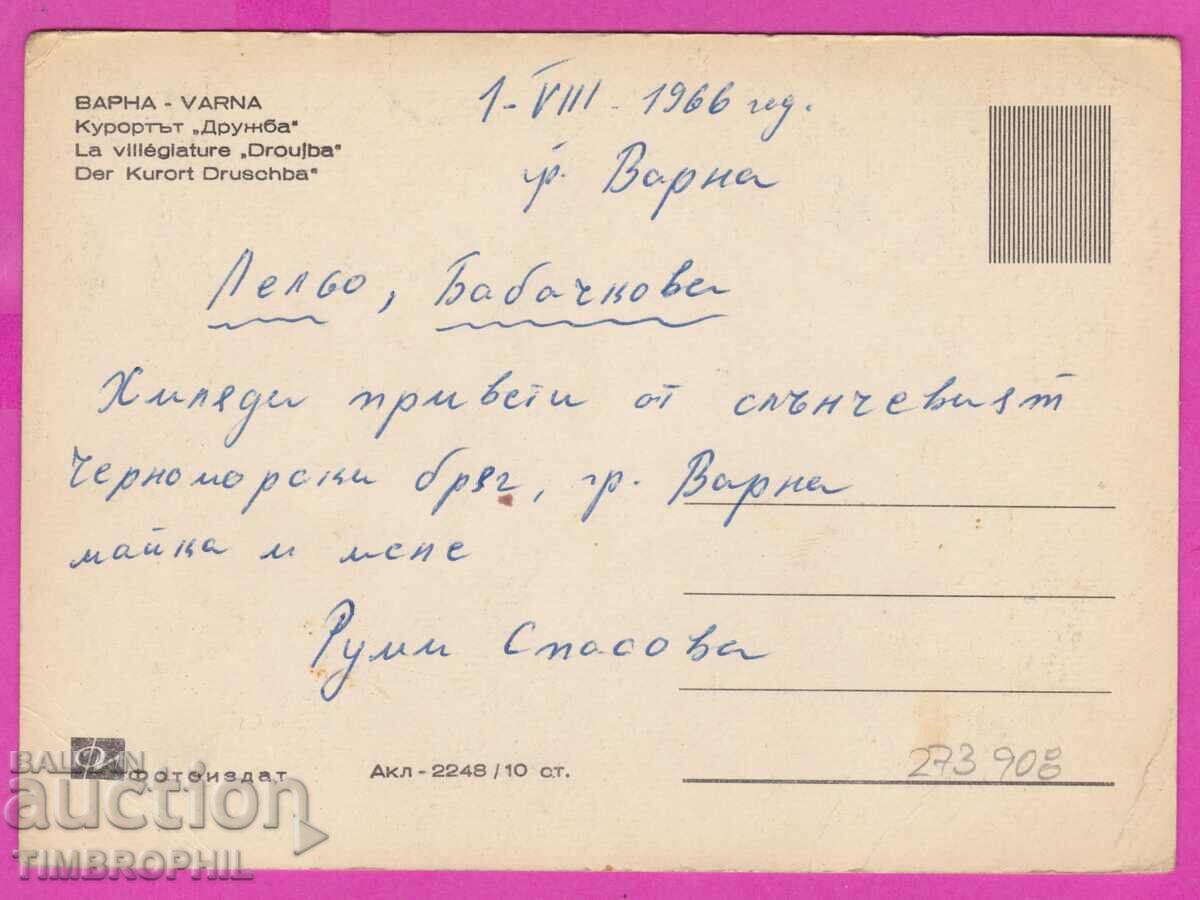 ВАРНА - VARNA
Курортът „Дружба"
La villégiature „Droujba"
Der Kurort Druschba"
1-VIII-1966 год.
гр. Варна
Лельо, Бабачкова
Хиляди привети от слънчевият
Черноморски бряг, гр. Варна
майка и мене
Руми Спасова
Фотоиздат
Акл-2248/10 ст.
BALKAN
auction
TIMBROPHIL